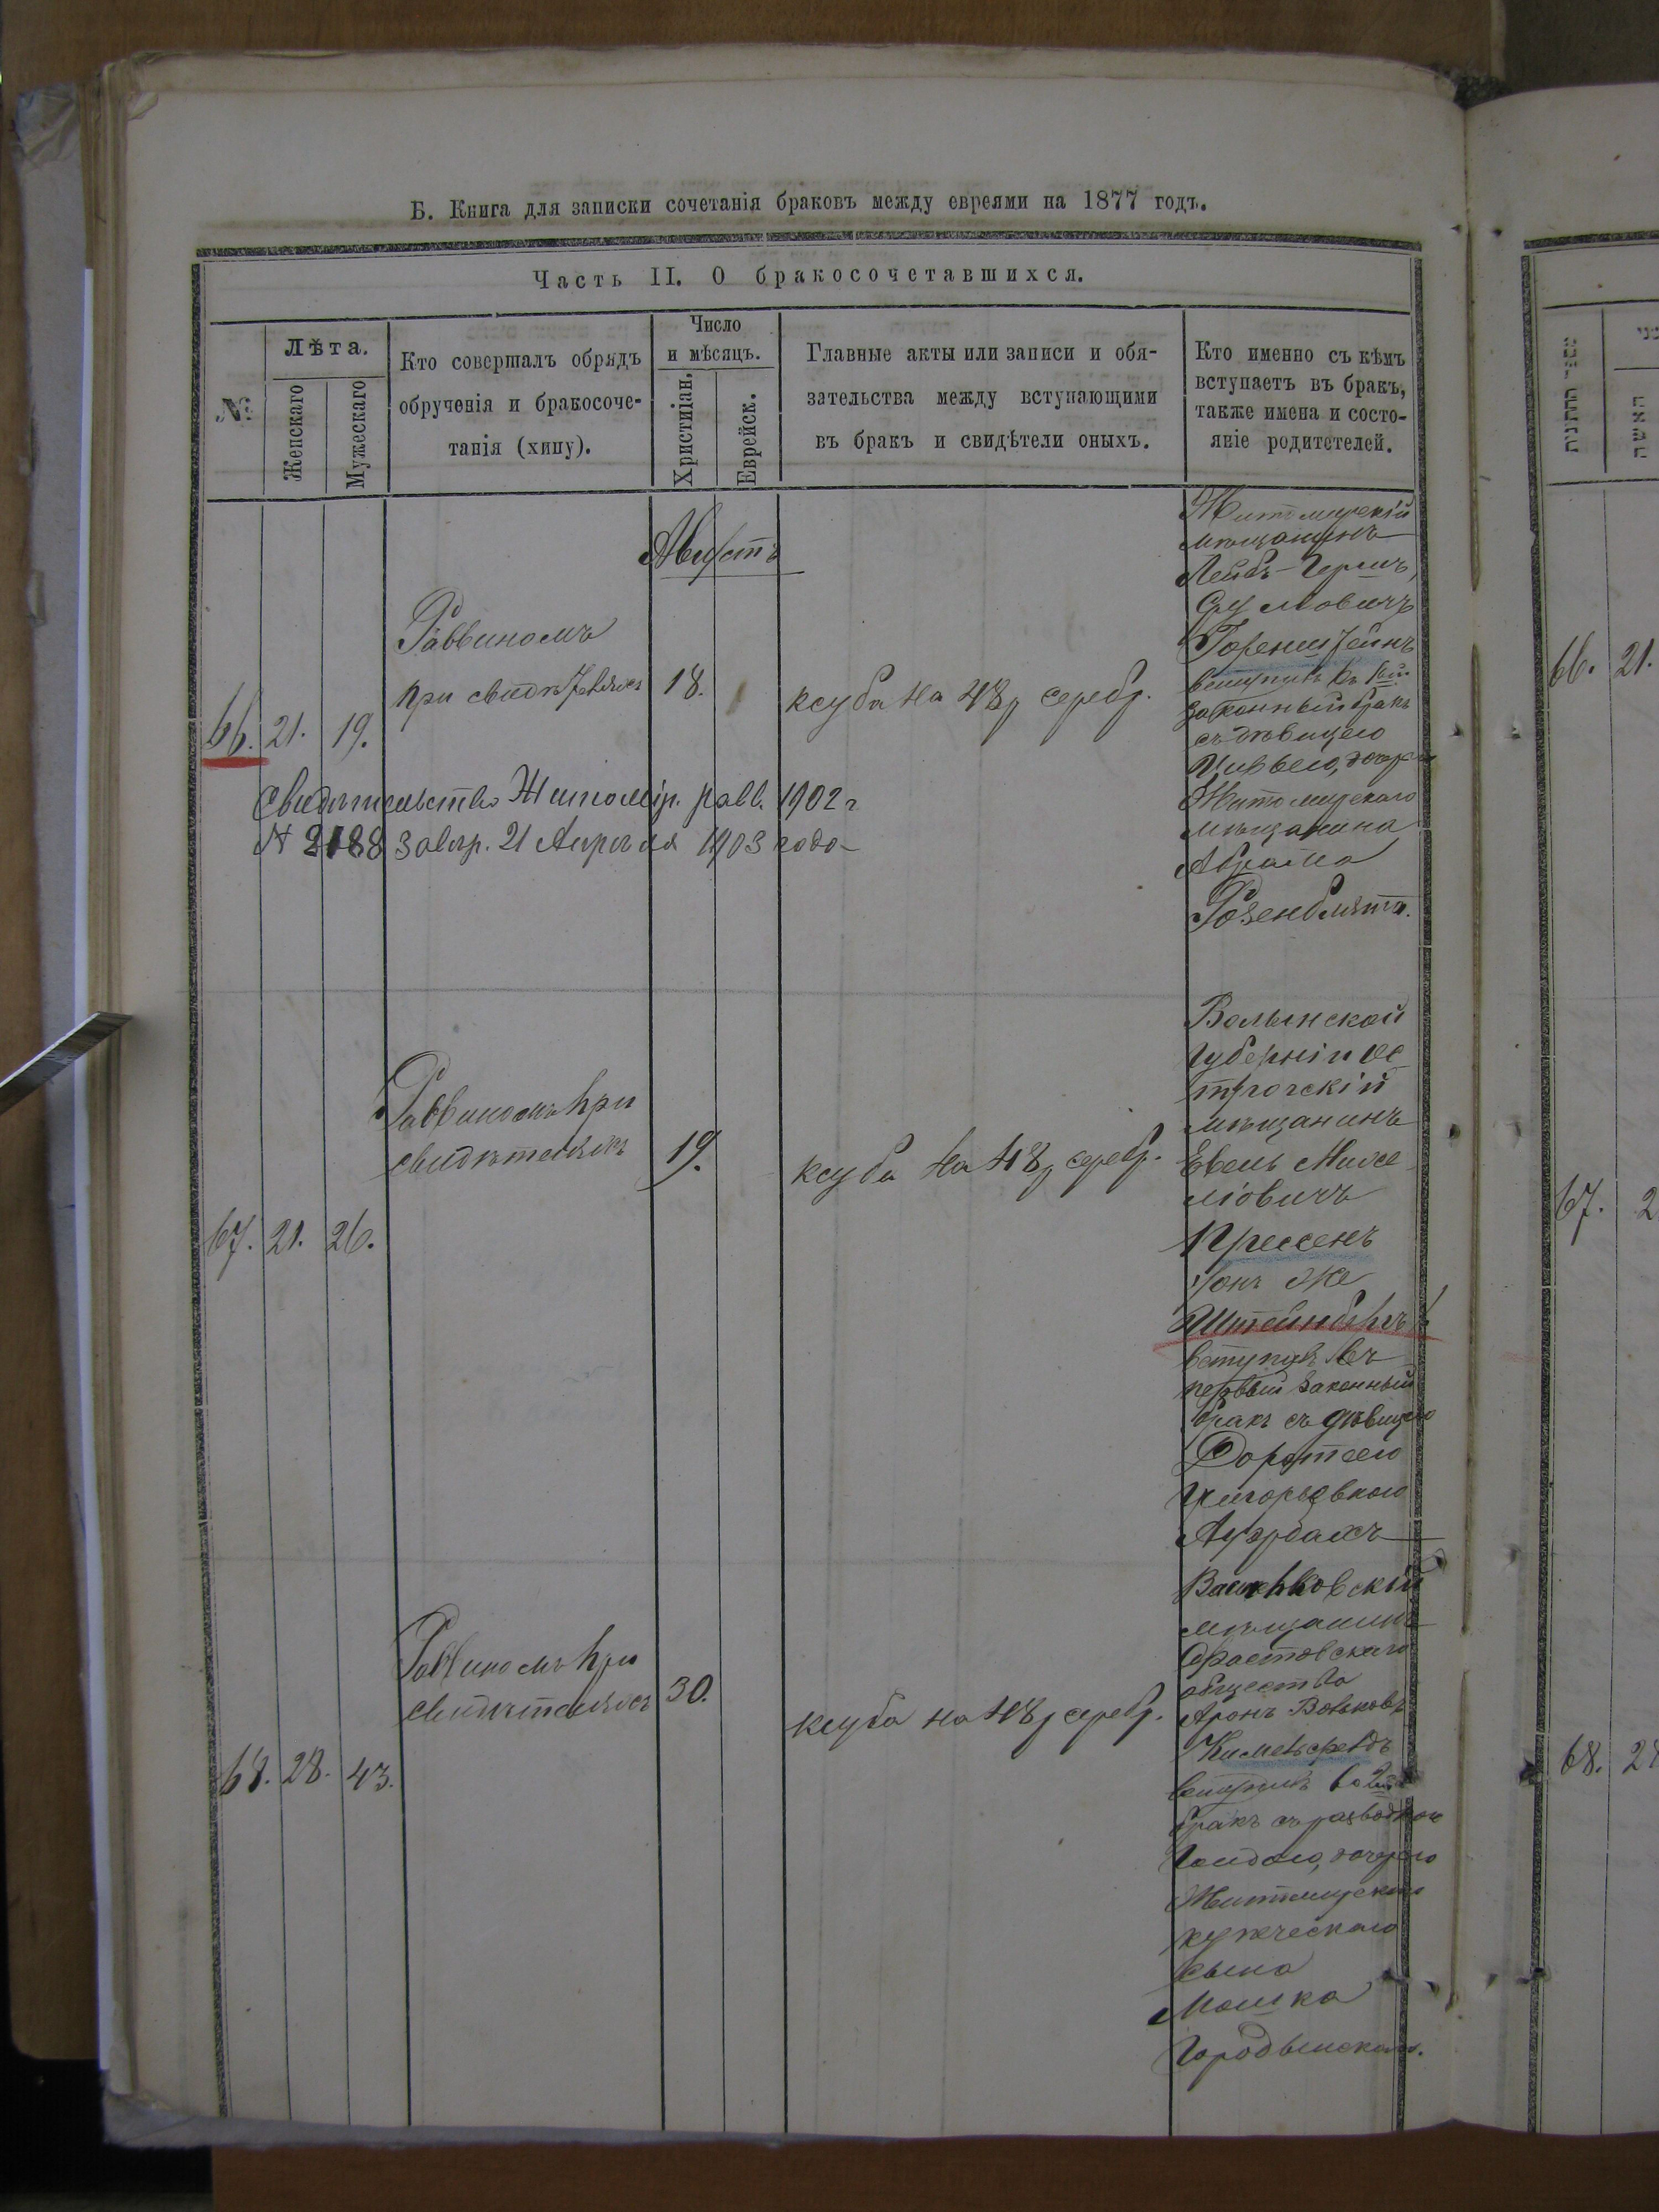 Б. Книга для записки сочетанія браковъ между евреями на 1877 годъ.
Часть II. О бракосочетавшихся.
№
Лѣта.
Женскаго
Мужескаго
Кто совершалъ обрядъ
обрученія и бракосоче-
танія (хипу).
Число
и мѣсяцъ.
Христіан.
Еврейск.
Главные акты или записи и обя-
зательства между вступающими
въ бракъ и свидѣтели оныхъ.
Кто именно съ кѣмъ
вступаетъ въ бракъ,
также имена и состо-
яніе родитетелей.
Августъ
66.
21.
19.
Раввиномъ
при свидѣтеляхъ
18.
ксуба на 48 р серебр.
Житомирскій
мѣщанинъ
Лейбъ-Гершъ
Сруліовичъ
Горенштейнъ
вступилъ въ 1ый
законный бракъ
съ дѣвицею
дочерью
Житомирскаго
мѣщанина
Абрама
Розенблята.
Свидѣтельство Житомір. равв. 1902 г
N 2188 завѣр. 21 Апрѣля 1903 года
67.
21.
26.
Раввиномъ при
свидѣтеляхъ
19.
ксуба на 48 р серебр.
Волынской
Губерніи Ос
трогскій
мѣщанинъ
Евель Михе
ліовичъ
Прессенъ
онъ же
Штейнбергъ
вступилъ въ
первый законный
бракъ съ дѣвицею
Доротеею
Григорьевною
Ауэрбахъ
68.
28.
43.
Раввиномъ при
свидѣтеляхъ
30.
ксуба на 48 р серебр.
Васильковскій
мѣщанинъ
Фастовскаго
общества
Аронъ Вольковъ
Кимельфельдъ
вступилъ во 2ой
бракъ съ разводкою
дочерью
Житомирскаго
купческаго
сына
Мошка
Городынскаго.
66.
21.
67.
2
68.
28
מספר החתנות
האשה